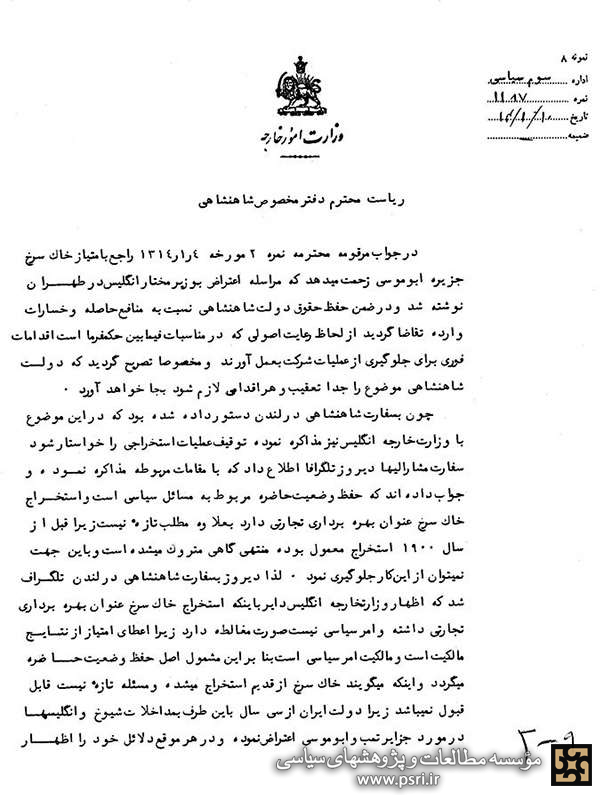 نمونه ۸
اداره سوم سیاسی
نمره ۱۱۸۷
تاریخ
ضمیمه
وزارت امور خارجه
ریاست محترم دفتر مخصوص شاهنشاهی
در جواب مرقومه محترمه نمره ۲ مورخه ۱۳۱۴ر۱ر۴ راجع بامتیاز خاک سرخ
جزیره ابوموسی زحمت میدهد که مراسله اعتراض بوزیر مختار انگلیس در طهران
نوشته شد و در ضمن حفظ حقوق دولت شاهنشاهی نسبت به منافع حاصله و خسارات
وارده تقاضا گردید از لحاظ رعایت اصولی که در مناسبات فیمابین حکمفرما است اقدامات
فوری برای جلوگیری از عملیات شرکت بعمل آورند و مخصوصا تصریح گردید که دولت
شاهنشاهی موضوع را جدا تعقیب و هر اقدامی لازم شود بجا خواهد آورد ۰
چون بسفارت شاهنشاهی در لندن دستور داده شده بود که در این موضوع
با وزارت خارجه انگلیس نیز مذاکره نموده توقیف عملیات استخراجی را خواستار شود
سفارت مشارالیها دیروز تلگرافا اطلاع داد که با مقامات مربوطه مذاکره نموده و
جواب داده اند که حفظ وضعیت حاضره مربوط به مسائل سیاسی است و استخراج
خاک سرخ عنوان بهره برداری تجارتی دارد بعلاوه مطلب تازه نیست زیرا قبل از
سال ۱۹۰۰ استخراج معمول بوده منتهی گاهی متروک میشده است و باین جهت
نمیتوان از این کار جلوگیری نمود ۰ لذا دیروز بسفارت شاهنشاهی در لندن تلگراف
شد که اظهار وزارتخارجه انگلیس دایر باینکه استخراج خاک سرخ عنوان بهره برداری
تجارتی داشته و امر سیاسی نیست صورت مغالطه دارد زیرا اعطای امتیاز از نتایج
مالکیت است و مالکیت امر سیاسی است بنا بر این مشمول اصل حفظ وضعیت حاضره
میگردد و اینکه میگویند خاک سرخ از قدیم استخراج میشده و مسئله تازه نیست قابل
قبول نمیباشد زیرا دولت ایران از سی سال باین طرف بمداخلات شیوخ و انگلیسها
در مورد جزایر تمب و ابوموسی اعتراض نموده و در هر موقع دلائل خود را اظهار
مؤسسه مطالعات و پژوهشهای سیاسی
www.psri.ir